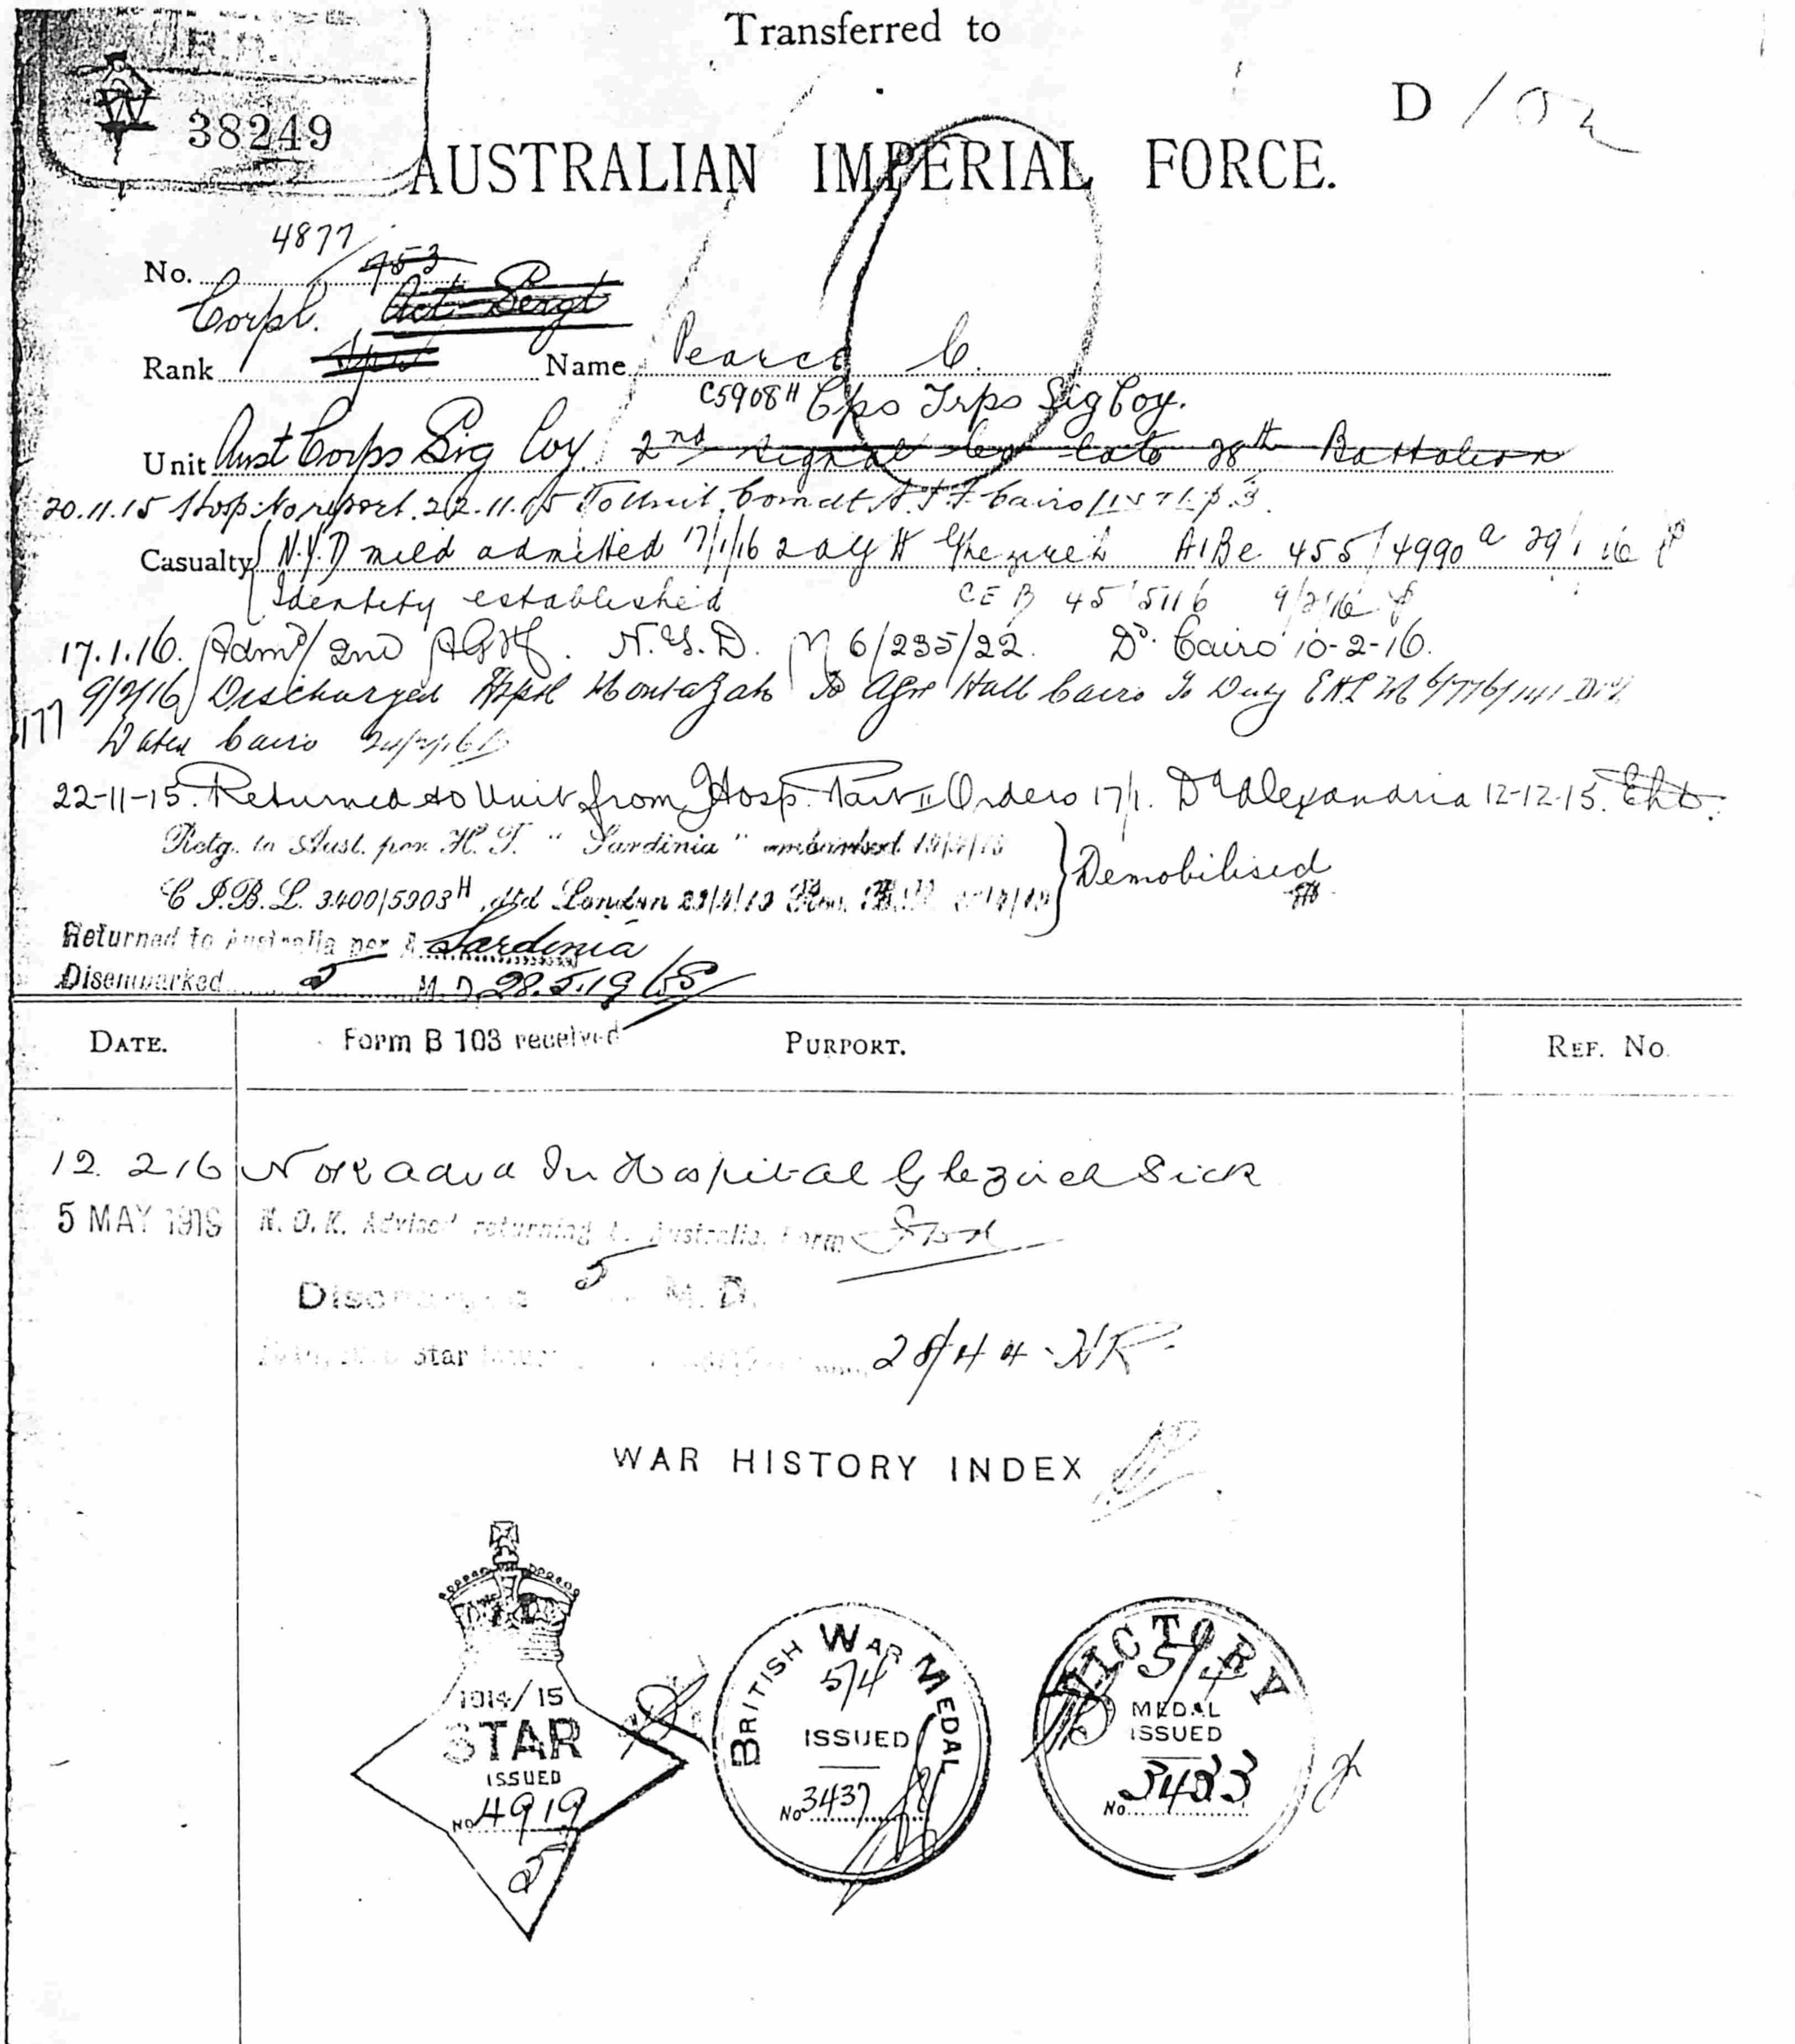 Transferred to
38249
D
AUSTRALIAN IMPERIAL FORCE.
4877
No. 953
Corpl. Act Sergt
Rank Name Pearce C.
C5908H Cps Trps Sig Coy.
Unit Aust Corps Sig Coy 2nd Signal Coy late 28th Battalion
20.11.15 Hosp. No report. 22.11.15 To Unit. Comdt A.I.F. Cairo
Casualty N.Y.D mild admitted 17/1/16 2 AGH Ghezireh 455/4990
Identity established 45 5116 9/2/16
17.1.16. Admd/ 2nd AGH. N.Y.D. M 6/235/22. Dd. Cairo 10-2-16.
9/2/16 Discharged Hspl Montazah to Hall Cairo To Duty
177
Dated Cairo
22-11-15. Returned to Unit from Hosp. Part II Orders 17/1. Dd Alexandria 12-12-15.
Retg. to Aust. per H.T. "Sardinia" embarked
C.P.B.L. 3400/5903H dtd London Demobilised
Returned to Australia per Sardinia
Disembarked 5 M.D. 28.5.19
DATE. Form B 103 received PURPORT. REF. No.
12.2 16 N OK advd In Hospital Ghezireh Sick
5 MAY 1919 N.O.K. Advised returning to Australia. Form
Discharged 5 M.D.
Star 28/4 4
WAR HISTORY INDEX
1914/15
STAR
ISSUED
No 4919
5
BRITISH WAR MEDAL
5/4
ISSUED
No 3437
VICTORY
5/4
MEDAL
ISSUED
No 3433